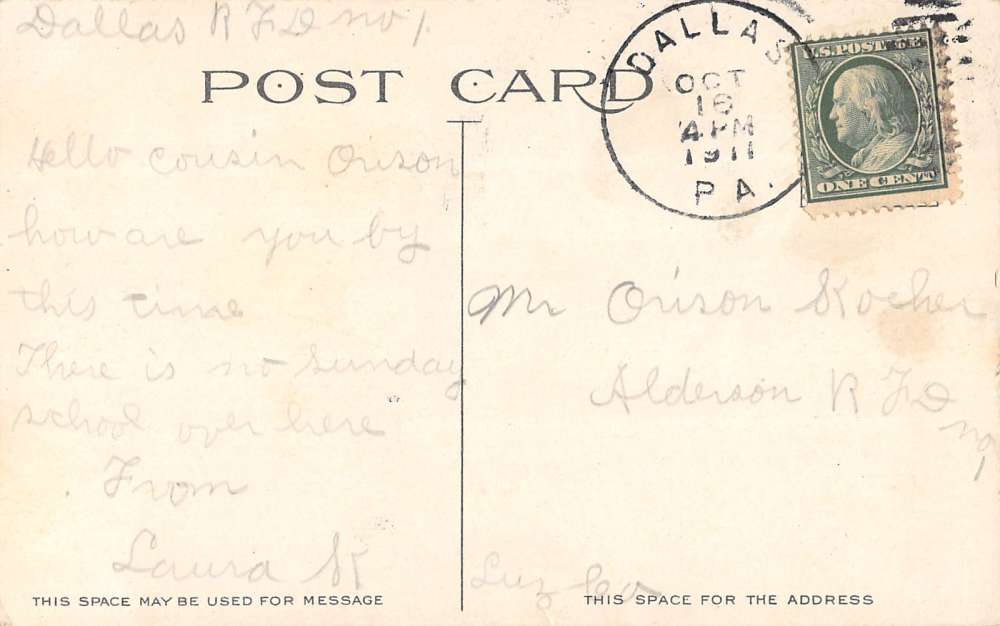 Dallas R F D no 1
POST CARD
DALLAS
OCT
16
4 PM
1911
PA.
U.S. POSTAGE
ONE CENT
Hello cousin Orison
how are you by
this time
There is no Sunday
school over here
From
Laura K
THIS SPACE MAY BE USED FOR MESSAGE
Mr Orison Kocher
Alderson R F D
no 1
Luz Co
THIS SPACE FOR THE ADDRESS